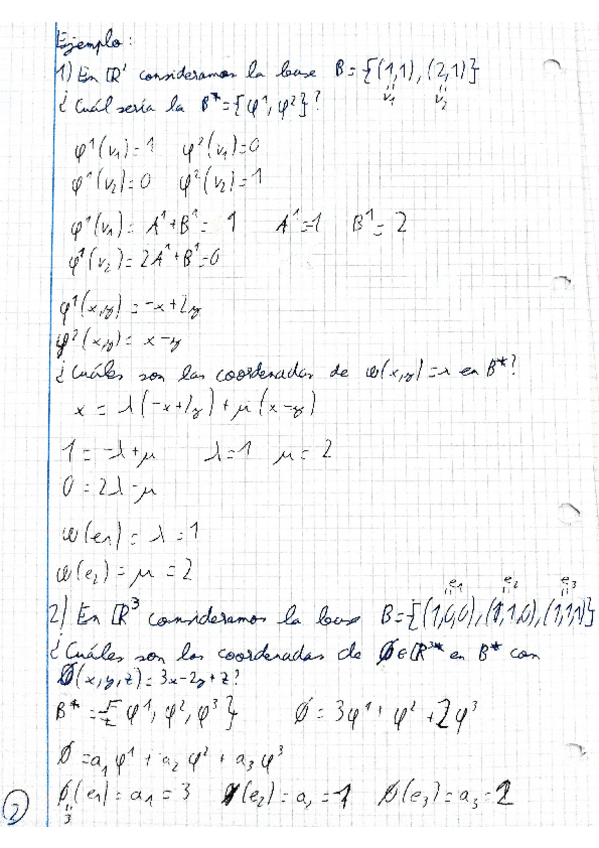 Ejemplo:
1) En ℝ² consideramos la base B={(1,1),(2,1)}
v₁ v₂
¿Cuál sería la B*={φ¹,φ²}?
φ¹(v₁)=1 φ²(v₁)=0
φ¹(v₂)=0 φ²(v₂)=1
φ¹(v₁)=A¹+B¹=1 A¹=-1 B¹=2
φ¹(v₂)=2A¹+B¹=0
φ¹(x,y)=-x+2y
φ²(x,y)=x-y
¿Cuáles son las coordenadas de ω(x,y)=x en B*?
x=λ(-x+2y)+μ(x-y)
1=-λ+μ λ=1 μ=2
0=2λ-μ
ω(e₁)=λ=1
ω(e₂)=μ=2
e₁ e₂ e₃
2) En ℝ³ consideramos la base B={(1,0,0),(1,1,0),(1,1,1)}
¿Cuáles son las coordenadas de Ø∈ℝ³* en B* con
Ø(x,y,z)=3x-2y+z?
B*={φ¹,φ²,φ³} Ø=3φ¹+φ²+2φ³
Ø=a₁φ¹+a₂φ²+a₃φ³
Ø(e₁)=a₁=3 Ø(e₂)=a₂=1 Ø(e₃)=a₃=2
3
2